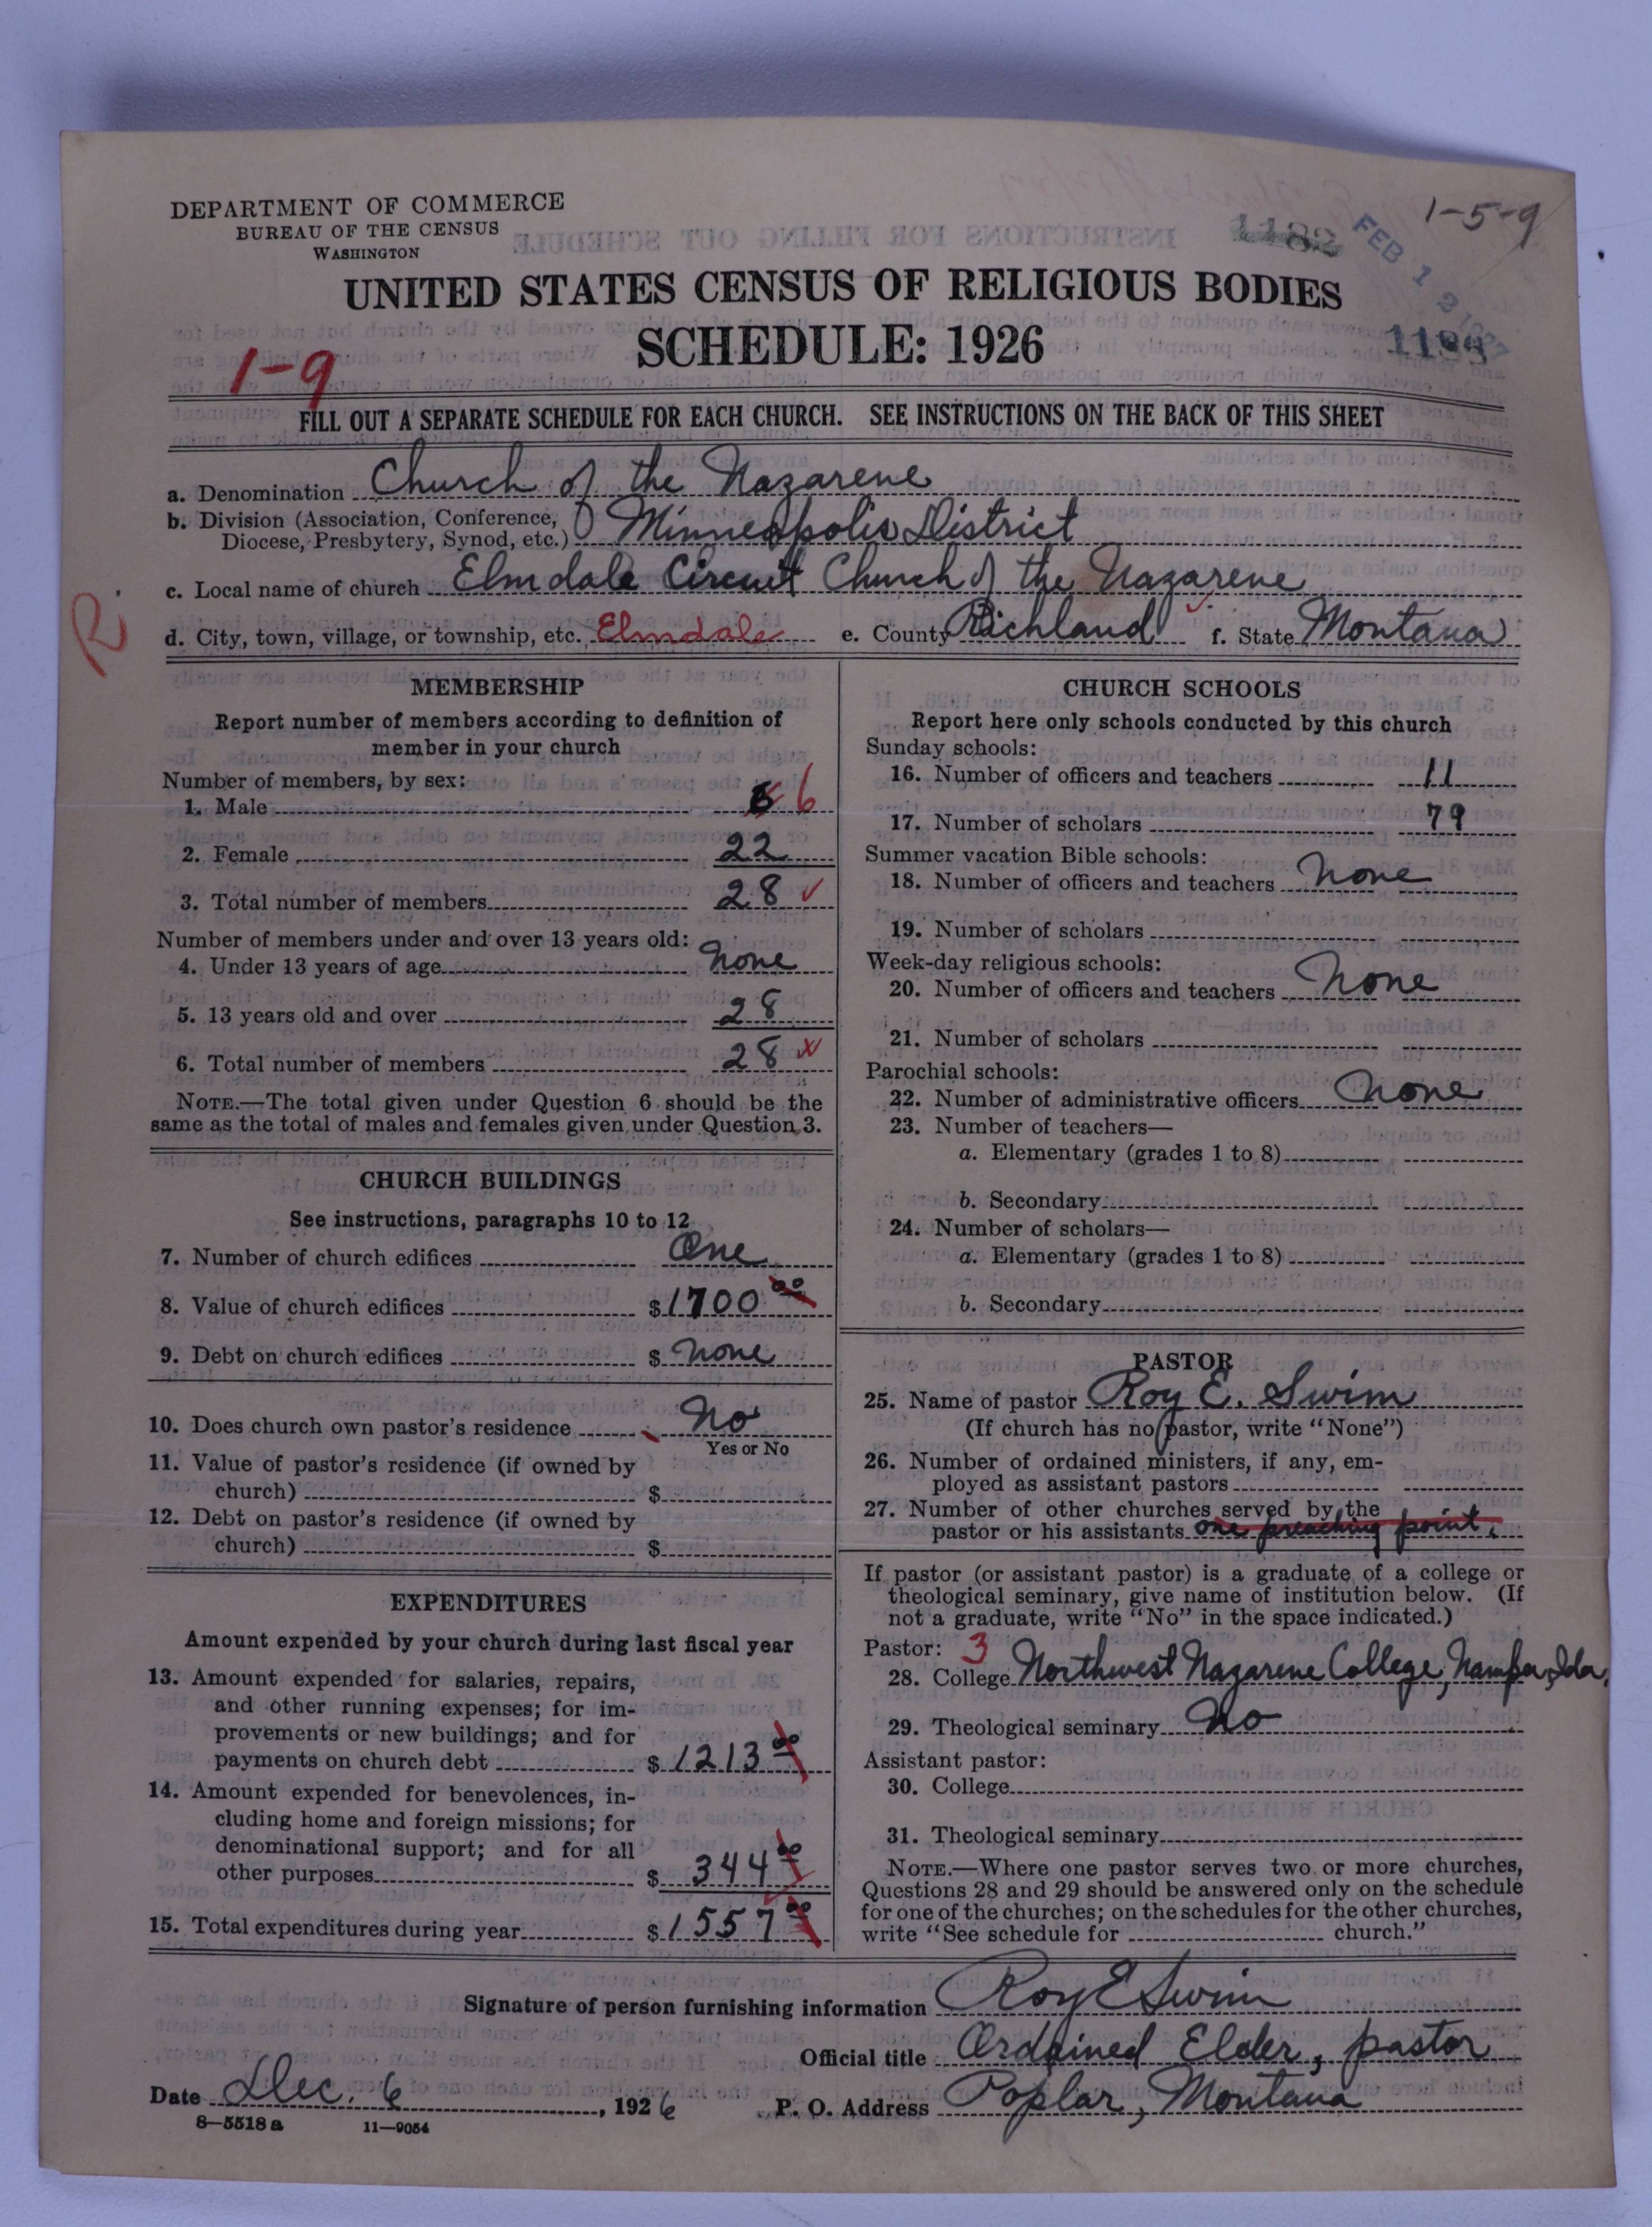 DEPARTMENT OF COMMERCE
BUREAU OF THE CENSUS
WASHINGTON
1-5-9
1182
FEB 1 2 1927
UNITED STATES CENSUS OF RELIGIOUS BODIES
SCHEDULE: 1926
1-9
FILL OUT A SEPARATE SCHEDULE FOR EACH CHURCH. SEE INSTRUCTIONS ON THE BACK OF THIS SHEET
a. Denomination Church of the Nazarene
b. Division (Association, Conference,
Diocese, Presbytery, Synod, etc.) Minneapolis District
c. Local name of church Elmdale Circuit Church of the Nazarene
R.
d. City, town, village, or township, etc. Elmdale e. County Richland f. State Montana
MEMBERSHIP
Report number of members according to definition of
member in your church
Number of members, by sex:
1. Male 6 6
2. Female 22
3. Total number of members 28
Number of members under and over 13 years old:
4. Under 13 years of age none
5. 13 years old and over 28
6. Total number of members 28
NOTE.—The total given under Question 6 should be the
same as the total of males and females given under Question 3.
CHURCH BUILDINGS
See instructions, paragraphs 10 to 12
7. Number of church edifices One
8. Value of church edifices $1700 00
9. Debt on church edifices $ none
10. Does church own pastor's residence No
Yes or No
11. Value of pastor's residence (if owned by
church) $
12. Debt on pastor's residence (if owned by
church) $
EXPENDITURES
Amount expended by your church during last fiscal year
13. Amount expended for salaries, repairs,
and other running expenses; for im-
provements or new buildings; and for
payments on church debt $1213 00
14. Amount expended for benevolences, in-
cluding home and foreign missions; for
denominational support; and for all
other purposes $ 344 00
15. Total expenditures during year $1557 00
CHURCH SCHOOLS
Report here only schools conducted by this church
Sunday schools:
16. Number of officers and teachers 11
17. Number of scholars 79
Summer vacation Bible schools:
18. Number of officers and teachers None
19. Number of scholars
Week-day religious schools:
20. Number of officers and teachers None
21. Number of scholars
Parochial schools:
22. Number of administrative officers None
23. Number of teachers—
a. Elementary (grades 1 to 8)
b. Secondary
24. Number of scholars—
a. Elementary (grades 1 to 8)
b. Secondary
PASTOR
25. Name of pastor Roy E. Swim
(If church has no pastor, write "None")
26. Number of ordained ministers, if any, em-
ployed as assistant pastors
27. Number of other churches served by the
pastor or his assistants one preaching point.
If pastor (or assistant pastor) is a graduate of a college or
theological seminary, give name of institution below. (If
not a graduate, write "No" in the space indicated.)
Pastor: 3
28. College Northwest Nazarene College, Nampa, Ida.
29. Theological seminary No
Assistant pastor:
30. College
31. Theological seminary
NOTE.—Where one pastor serves two or more churches,
Questions 28 and 29 should be answered only on the schedule
for one of the churches; on the schedules for the other churches,
write "See schedule for church."
Signature of person furnishing information Roy E Swim
Official title Ordained Elder, pastor
Date Dec. 6, 1926 P. O. Address Poplar, Montana
8—5518 a 11—9054